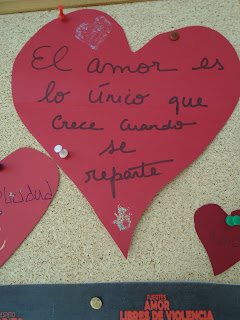 El amor es
lo único que
crece cuando
se
reparte
licidad
FUERTES
AMOR
LIBRES DE VIOLENCIA